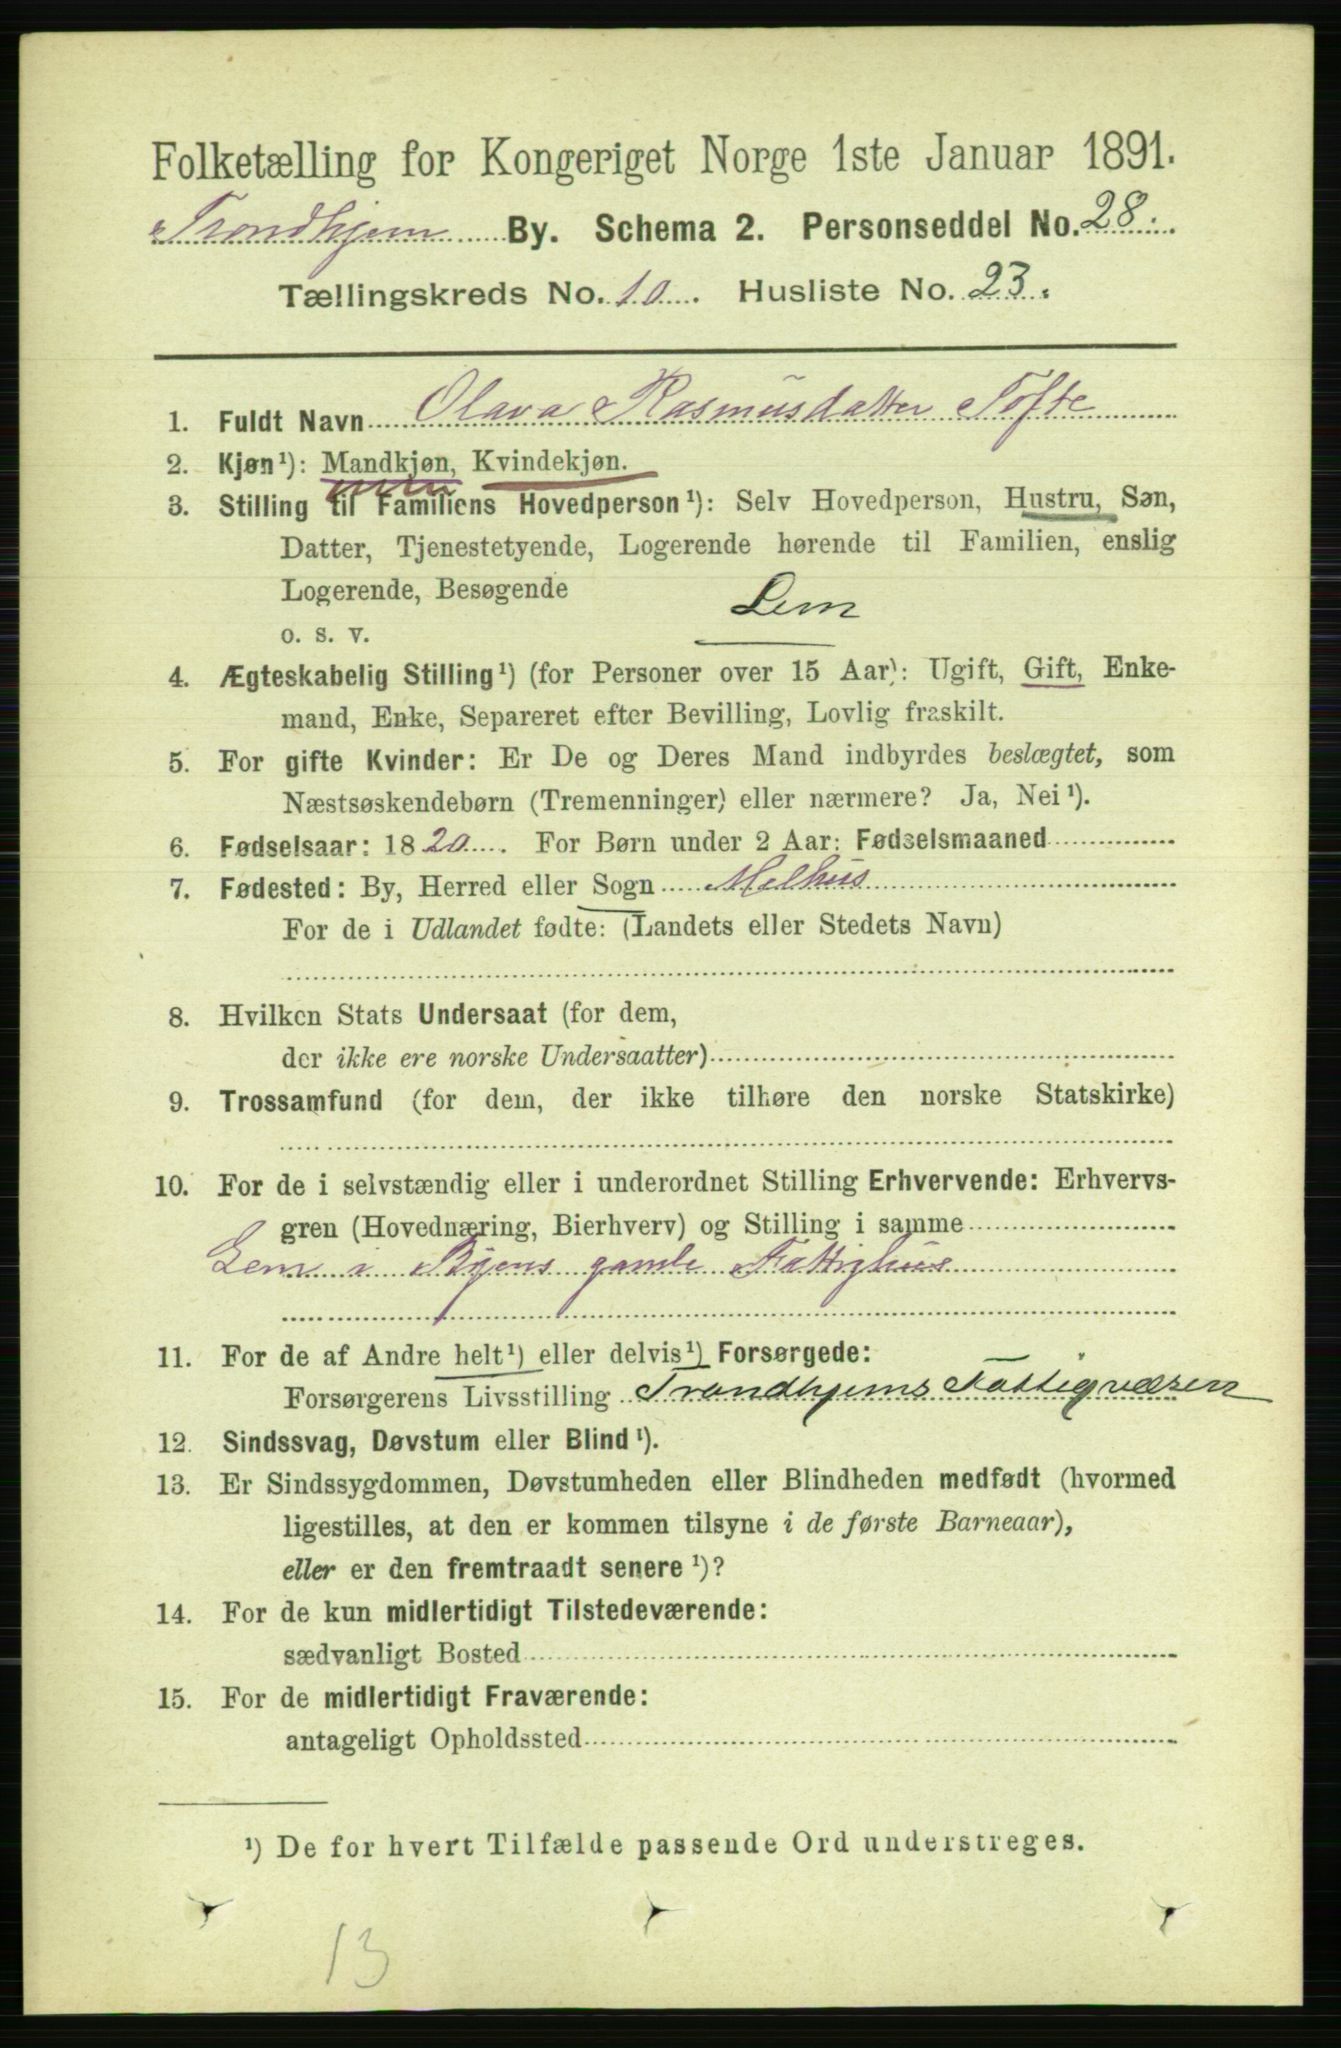 Folketælling for Kongeriget Norge 1ste Januar 1891.
Trondhjem By. Schema 2. Personseddel No. 28.
Tællingskreds No. 10. Husliste No. 23.
1. Fuldt Navn Olava Rasmusdatter Tofte
2. Kjøn¹): Mandkjøn, Kvindekjøn.
3. Stilling til Familiens Hovedperson¹): Selv Hovedperson, Hustru, Søn,
Datter, Tjenestetyende, Logerende hørende til Familien, enslig
Logerende, Besøgende
o. s. v. Lem
4. Ægteskabelig Stilling¹) (for Personer over 15 Aar): Ugift, Gift, Enke-
mand, Enke, Separeret efter Bevilling, Lovlig fraskilt.
5. For gifte Kvinder: Er De og Deres Mand indbyrdes beslægtet, som
Næstsøskendebørn (Tremenninger) eller nærmere? Ja, Nei¹).
6. Fødselsaar: 1820. For Børn under 2 Aar: Fødselsmaaned
7. Fødested: By, Herred eller Sogn Melhus
For de i Udlandet fødte: (Landets eller Stedets Navn)
8. Hvilken Stats Undersaat (for dem,
der ikke ere norske Undersaatter)
9. Trossamfund (for dem, der ikke tilhøre den norske Statskirke)
10. For de i selvstændig eller i underordnet Stilling Erhvervende: Erhvervs-
gren (Hovednæring, Bierhverv) og Stilling i samme
Lem i Byens gamle Fattighus
11. For de af Andre helt¹) eller delvis¹) Forsørgede:
Forsørgerens Livsstilling Trondhjems Fattigvæsen
12. Sindssvag, Døvstum eller Blind¹).
13. Er Sindssygdommen, Døvstumheden eller Blindheden medfødt (hvormed
ligestilles, at den er kommen tilsyne i de første Barneaar),
eller er den fremtraadt senere¹)?
14. For de kun midlertidigt Tilstedeværende:
sædvanligt Bosted
15. For de midlertidigt Fraværende:
antageligt Opholdssted
¹) De for hvert Tilfælde passende Ord understreges.
13